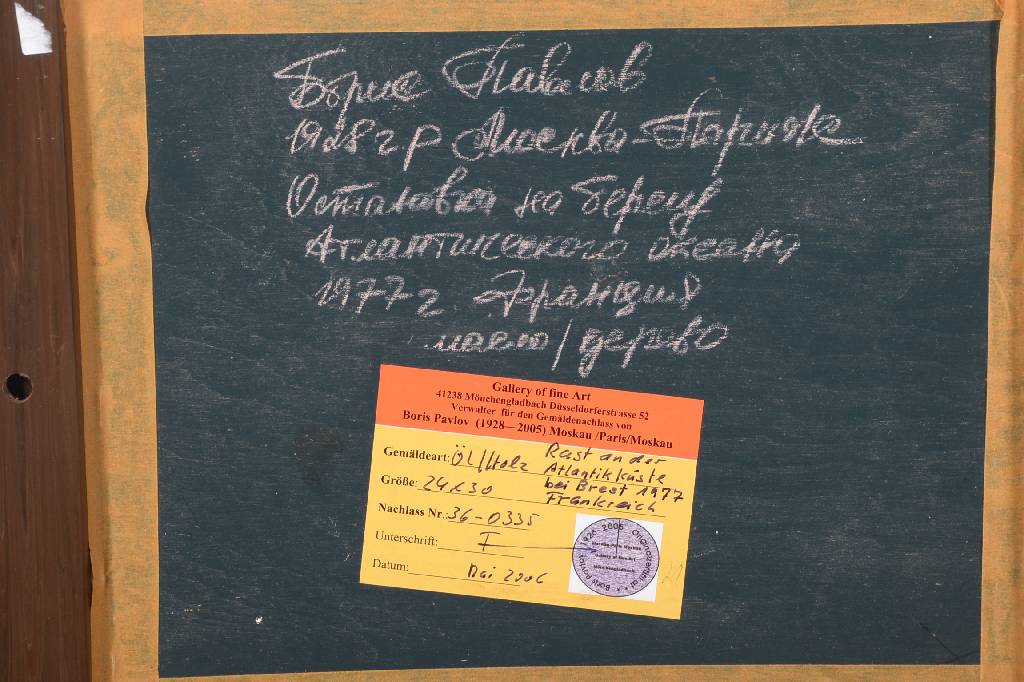 Борис Павлов
1928 г р Москва-Париж
Остановка на берегу
Атлантического океана
1977 г. Франция
масло/дерево
Gallery of fine Art
41238 Mönchengladbach Düsseldorferstrasse 52
Verwalter für den Gemäldenachlass von
Boris Pavlov (1928—2005) Moskau /Paris/Moskau
Gemäldeart: Öl/Holz Rast an der
Atlantikküste
Größe: 24x30 bei Brest 1977
Frankreich
Nachlass Nr.: 36-0335
Unterschrift:
Datum: Mai 2006